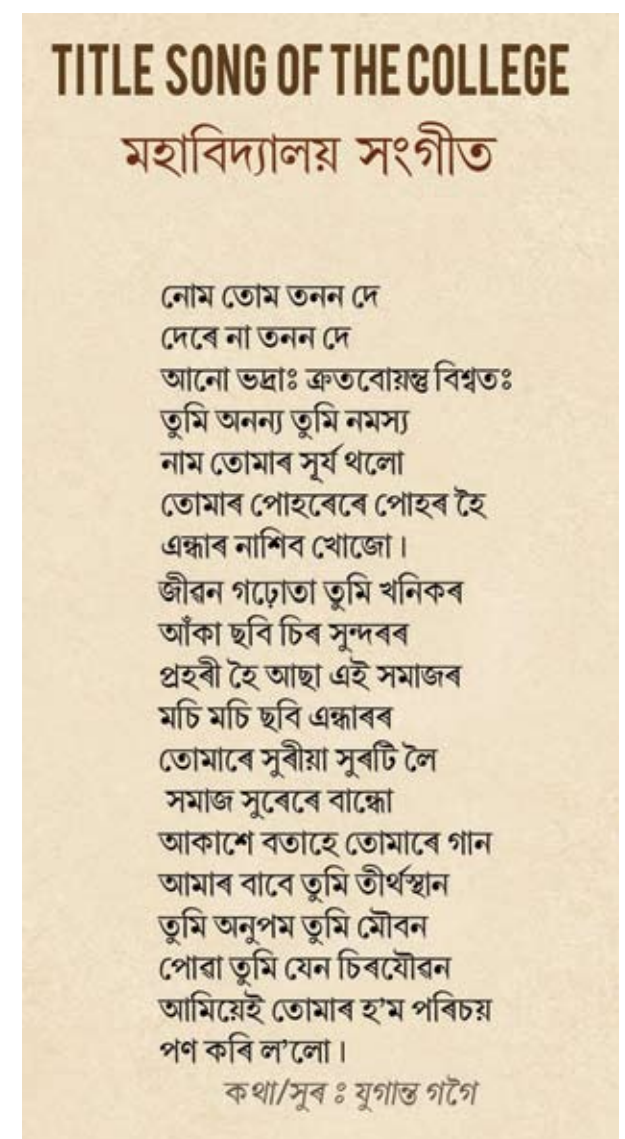 TITLE SONG OF THE COLLEGE
মহাবিদ্যালয় সংগীত
নোম তোম তনন দে
দেৰে না তনন দে
আনো ভদ্ৰাঃ ক্ৰতবোয়ন্তু বিশ্বতঃ
তুমি অনন্য তুমি নমস্য
নাম তোমাৰ সূৰ্য থলো
তোমাৰ পোহৰেৰে পোহৰ হৈ
এন্ধাৰ নাশিব খোজো।
জীৱন গঢ়োতা তুমি খনিকৰ
আঁকা ছবি চিৰ সুন্দৰৰ
প্ৰহৰী হৈ আছা এই সমাজৰ
মচি মচি ছবি এন্ধাৰৰ
তোমাৰে সুৰীয়া সুৰটি লৈ
সমাজ সুৰেৰে বান্ধো
আকাশে বতাহে তোমাৰে গান
আমাৰ বাবে তুমি তীৰ্থস্থান
তুমি অনুপম তুমি মৌবন
পোৱা তুমি যেন চিৰযৌৱন
আমিয়েই তোমাৰ হ'ম পৰিচয়
পণ কৰি ল'লো।
কথা/সুৰ ঃ যুগান্ত গগৈ